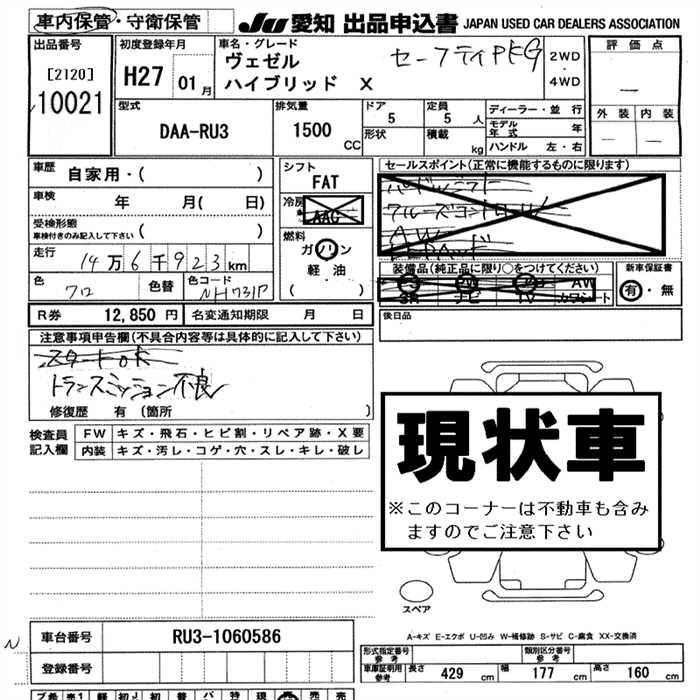 車内保管・守衛保管
JU 愛知 出品申込書 JAPAN USED CAR DEALERS ASSOCIATION
出品番号 初度登録年月 車名・グレード セーフティPKG 2WD・4WD 評価点
[2120] H27 01月 ヴェゼル
10021 ハイブリッド X
型式 排気量 ドア 定員 ディーラー・並行 外装 内装
DAA-RU3 1500 CC 5 5人 モデル年式 年
形状 積載 kg ハンドル 左・右
車歴 自家用・( ) シフト セールスポイント(正常に機能するものに限ります)
FAT パドルシフト
車検 年 月( 日) 冷房 クルーズコントロール
受検形態 AAC AW
車検付きのみ記入して下さい ( )
走行 14万6千923km 燃料 ガソリン 軽油 ( )
装備品(純正品に限り○をつけてください) 新車保証書
ナビ TV AW カワシート 有・無
色 クロ 色替 色コード NH731P
R券 12,850円 名変通知期限 月 日 後日品
注意事項申告欄(不具合内容等は具体的に記入して下さい)
スタートOK
トランスミッション不良
修復歴 有 (箇所 )
現状車
※このコーナーは不動車も含み
ますのでご注意下さい
検査員記入欄 FW キズ・飛石・ヒビ割・リペア跡・X要
内装 キズ・汚レ・コゲ・穴・スレ・キレ・破レ
スペア
A-キズ E-エクボ U-凹み W-補修跡 S-サビ C-腐食 XX-交換済
N 車台番号 RU3-1060586
登録番号
形式指定番号 参考 類別区分番号 参考
車庫証明用 参考 長さ 429 cm 幅 177 cm 高さ 160 cm